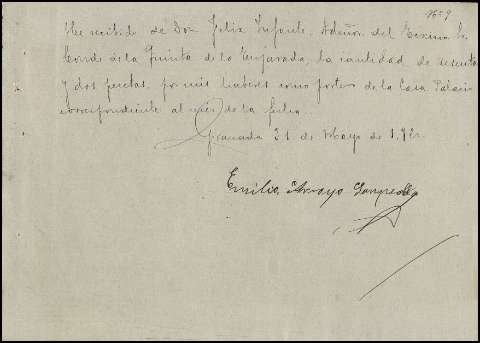 16-9
He recibido de Don Felix Infante, Admor. del Excmo. Sr.
Conde de la Quinta de la Enjarada, la cantidad de sesenta
y dos pesetas, por mis haberes como portero de la Casa Palacio
correspondiente al mes de la fecha.
Granada 31 de Mayo de
Emilio Arroyo